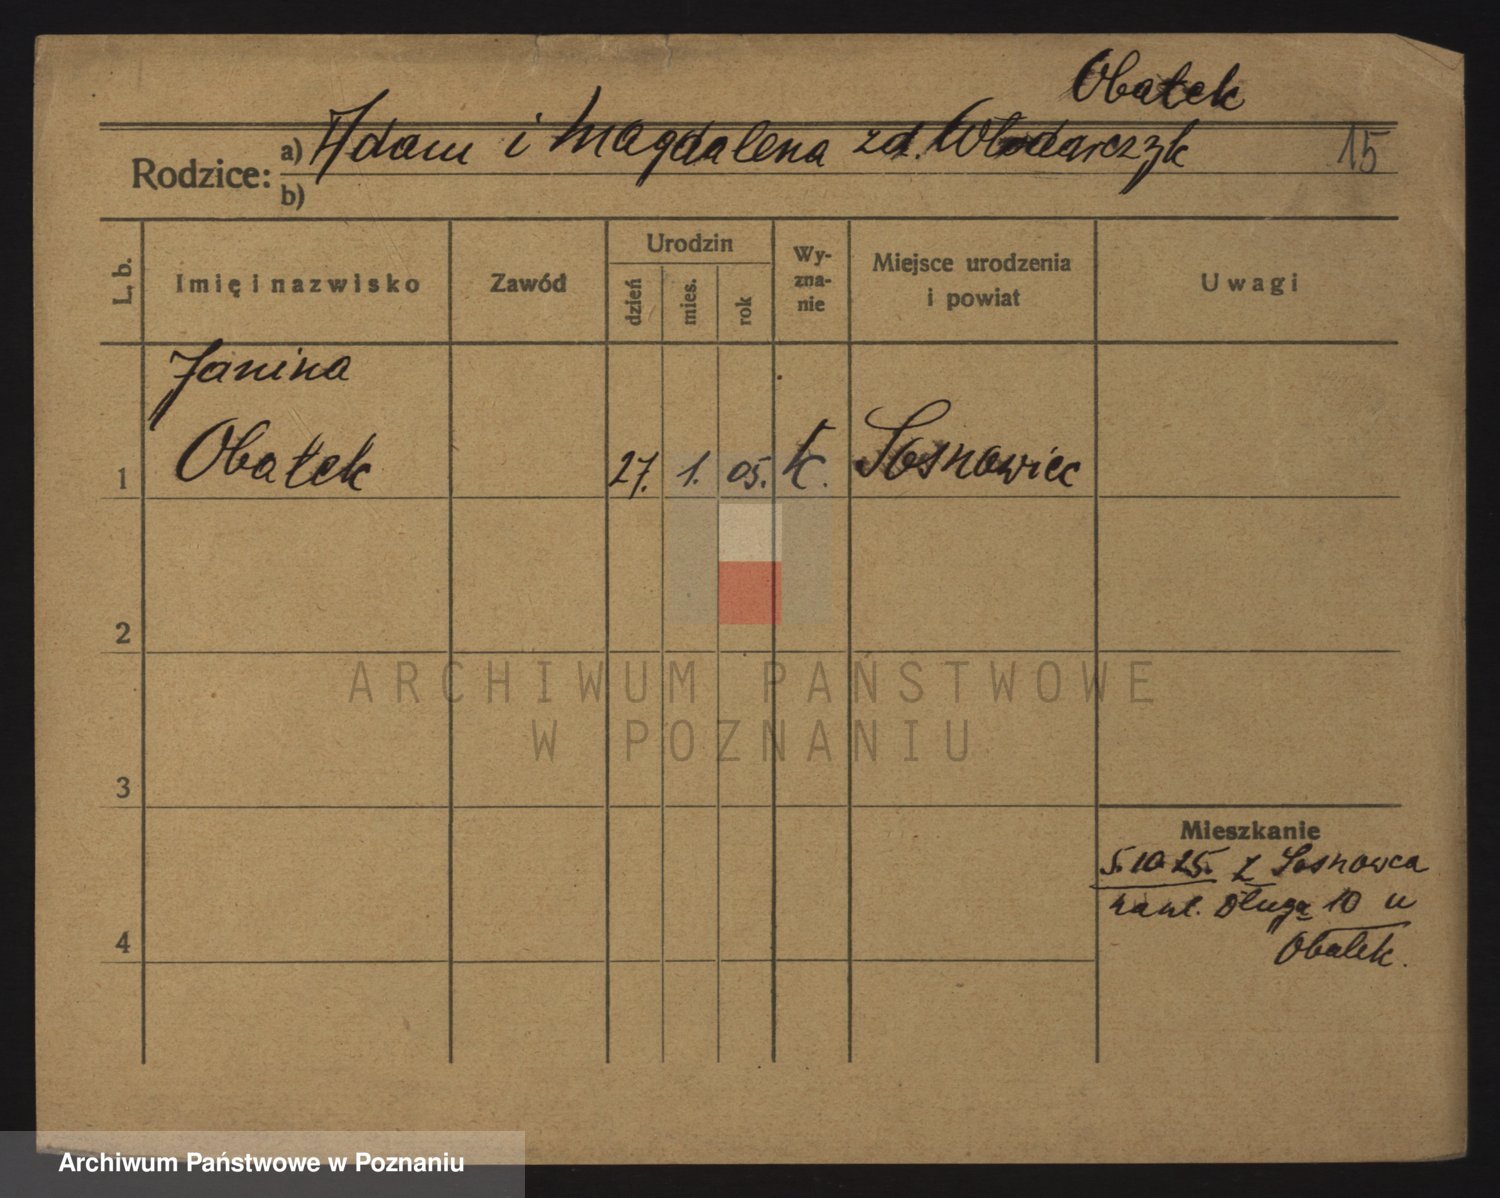 Obałek
15
Rodzice:
a) Adam i Magdalena zd. Włodarczyk
b)
L. b.
Imię i nazwisko
Zawód
Urodzin
dzień
mies.
rok
Wy-
zna-
nie
Miejsce urodzenia
i powiat
Uwagi
Janina
1 Obałek 27. 1. 05. k. Sosnowiec
2
3
4
Mieszkanie
5.10.25. z Sosnowca
Długa 10 u
Obałek.
ARCHIWUM PAŃSTWOWE
W POZNANIU
Archiwum Państwowe w Poznaniu